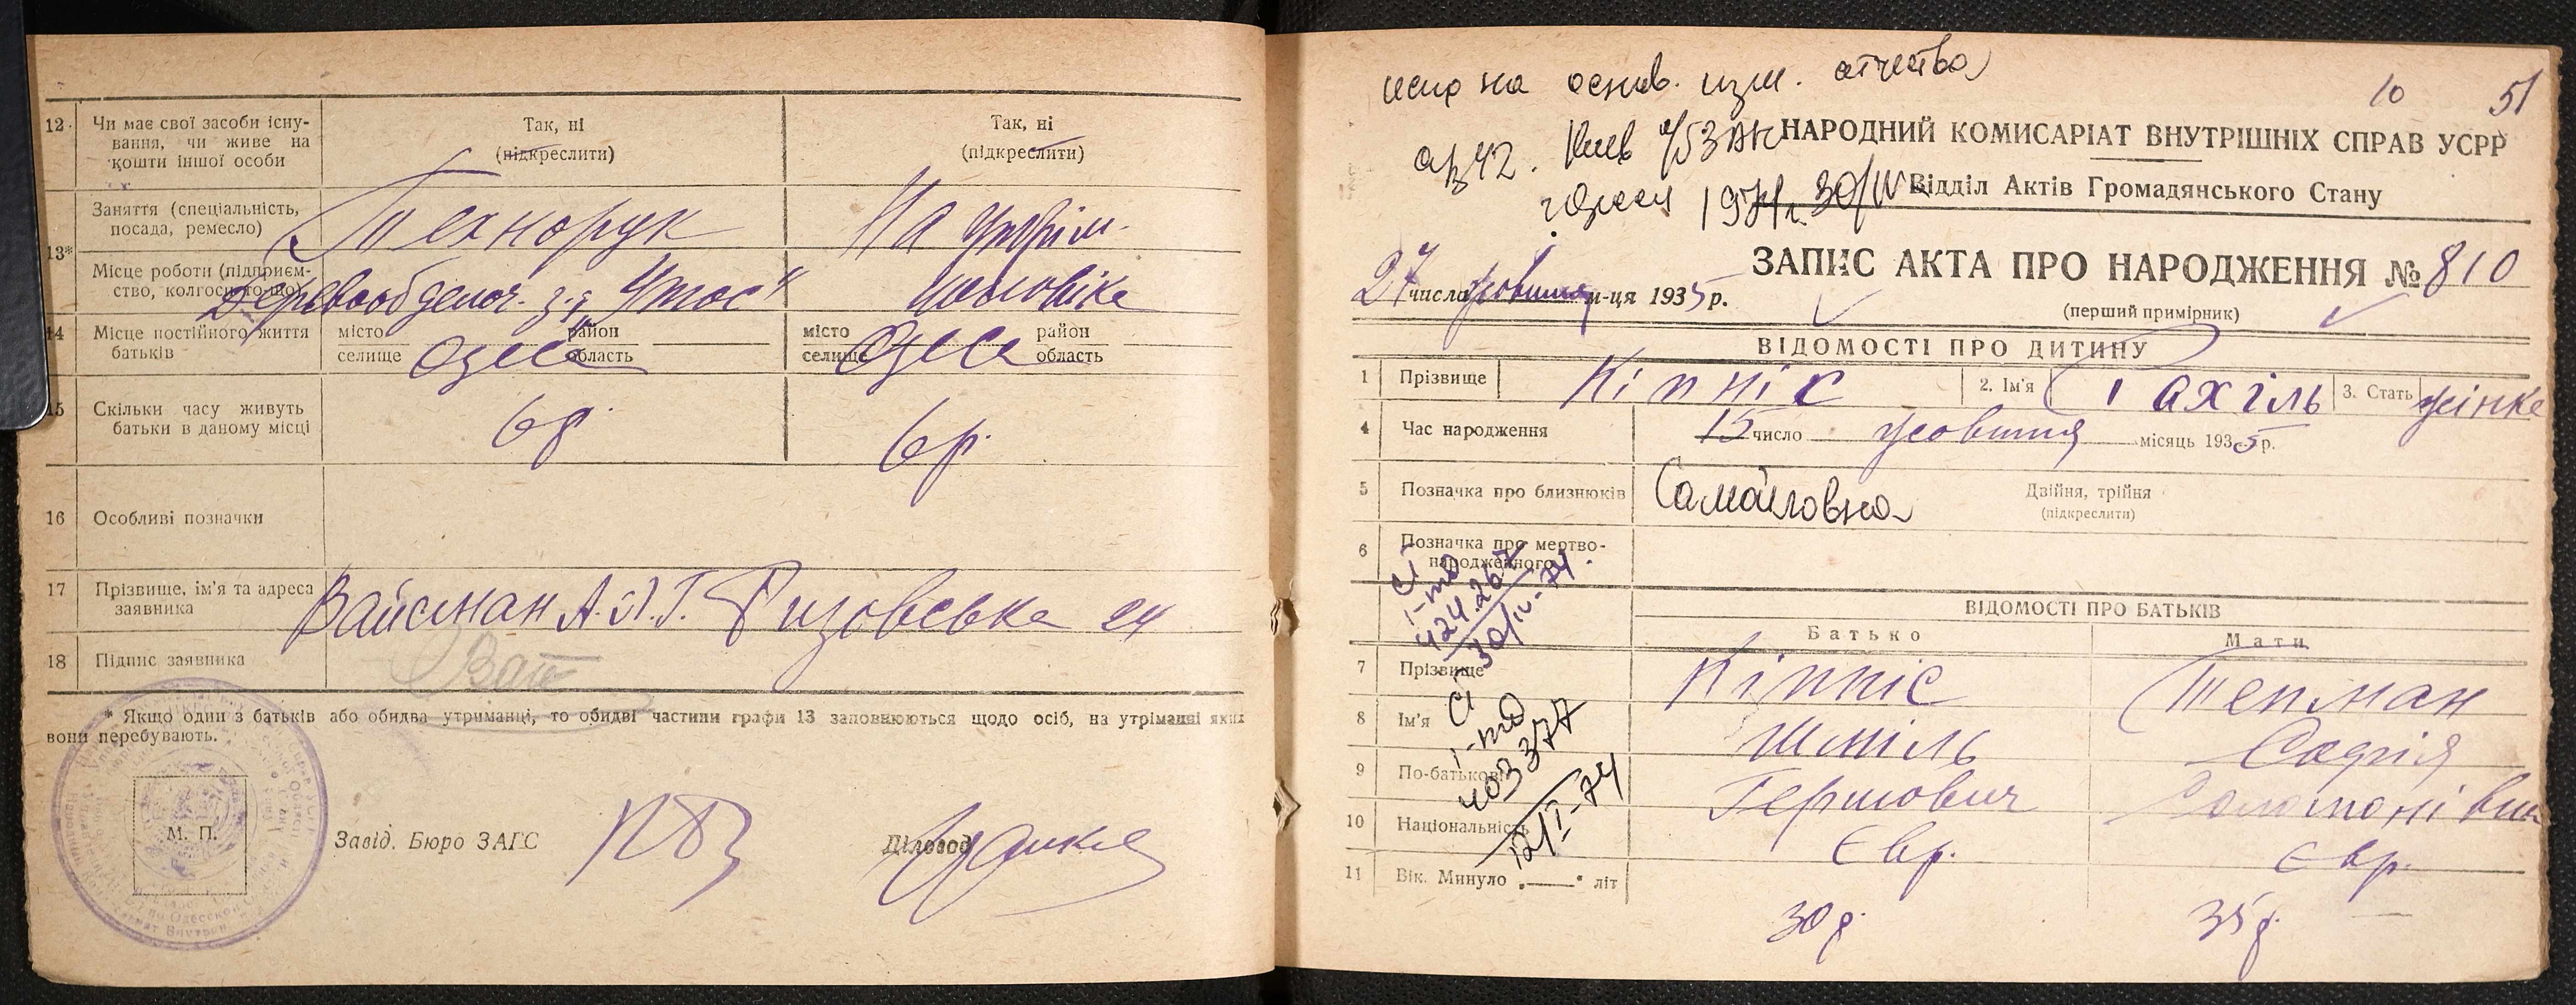 12. Чи має свої засоби існу-
вання, чи живе на
кошти іншої особи
Так, ні
(підкреслити)
Так, ні
(підкреслити)
13*
Заняття (спеціальність,
посада, ремесло)
Технорук
На утрім.
Місце роботи (підприєм-
ство, колгосп тощо)
Деревообделоч. з-д "Утос"
чоловіка
14 Місце постійного життя
батьків
місто
селище
Одеса
район
область
місто
селище
Одеса
район
область
15 Скільки часу живуть
батьки в даному місці
6 р.
6 р.
16 Особливі позначки
17 Прізвище, ім'я та адреса
заявника
Вайсман А. Л. Г. Ризовська 24
18 Підпис заявника
Вай
* Якщо один з батьків або обидва утриманці, то обидві частини графи 13 заповнюються щодо осіб, на утріманні яких
вони перебувають.
М. П.
Завід. Бюро ЗАГС
Діловод
на основ. изм. отчества
Киев
1974г. 30/IV
10 51
НАРОДНИЙ КОМИСАРІАТ ВНУТРІШНІХ СПРАВ УСРР
Відділ Актів Громадянського Стану
ЗАПИС АКТА ПРО НАРОДЖЕННЯ № 810
27 числа жовтня м-ця 1935 р.
(перший примірник)
ВІДОМОСТІ ПРО ДИТИНУ
1 Прізвище Кіпніс 2. Ім'я Рахіль 3. Стать жінка
4 Час народження 15 число жовтня місяць 1935 р.
5 Позначка про близнюків Самойловна Двійня, трійня
(підкреслити)
6 Позначка про мертво-
народженого
424267
30/IV-74.
ВІДОМОСТІ ПРО БАТЬКІВ
Батько Мати
7 Прізвище Кіпніс Тепман
8 Ім'я Шміль Софія
403377
12/I-74
9 По-батькові Гершович Соломонівна
10 Національність Євр. Євр.
11 Вік. Минуло „—“ літ
30 р. 35 р.